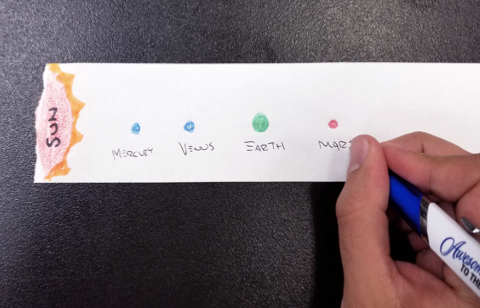 SUN
MERCURY
VENUS
EARTH
MARS
Awesome
TO THE